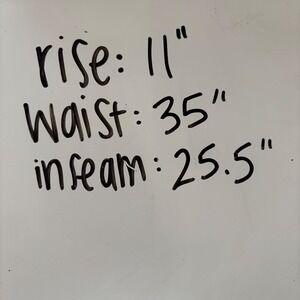 rise: 11"
waist: 35"
inseam: 25.5"